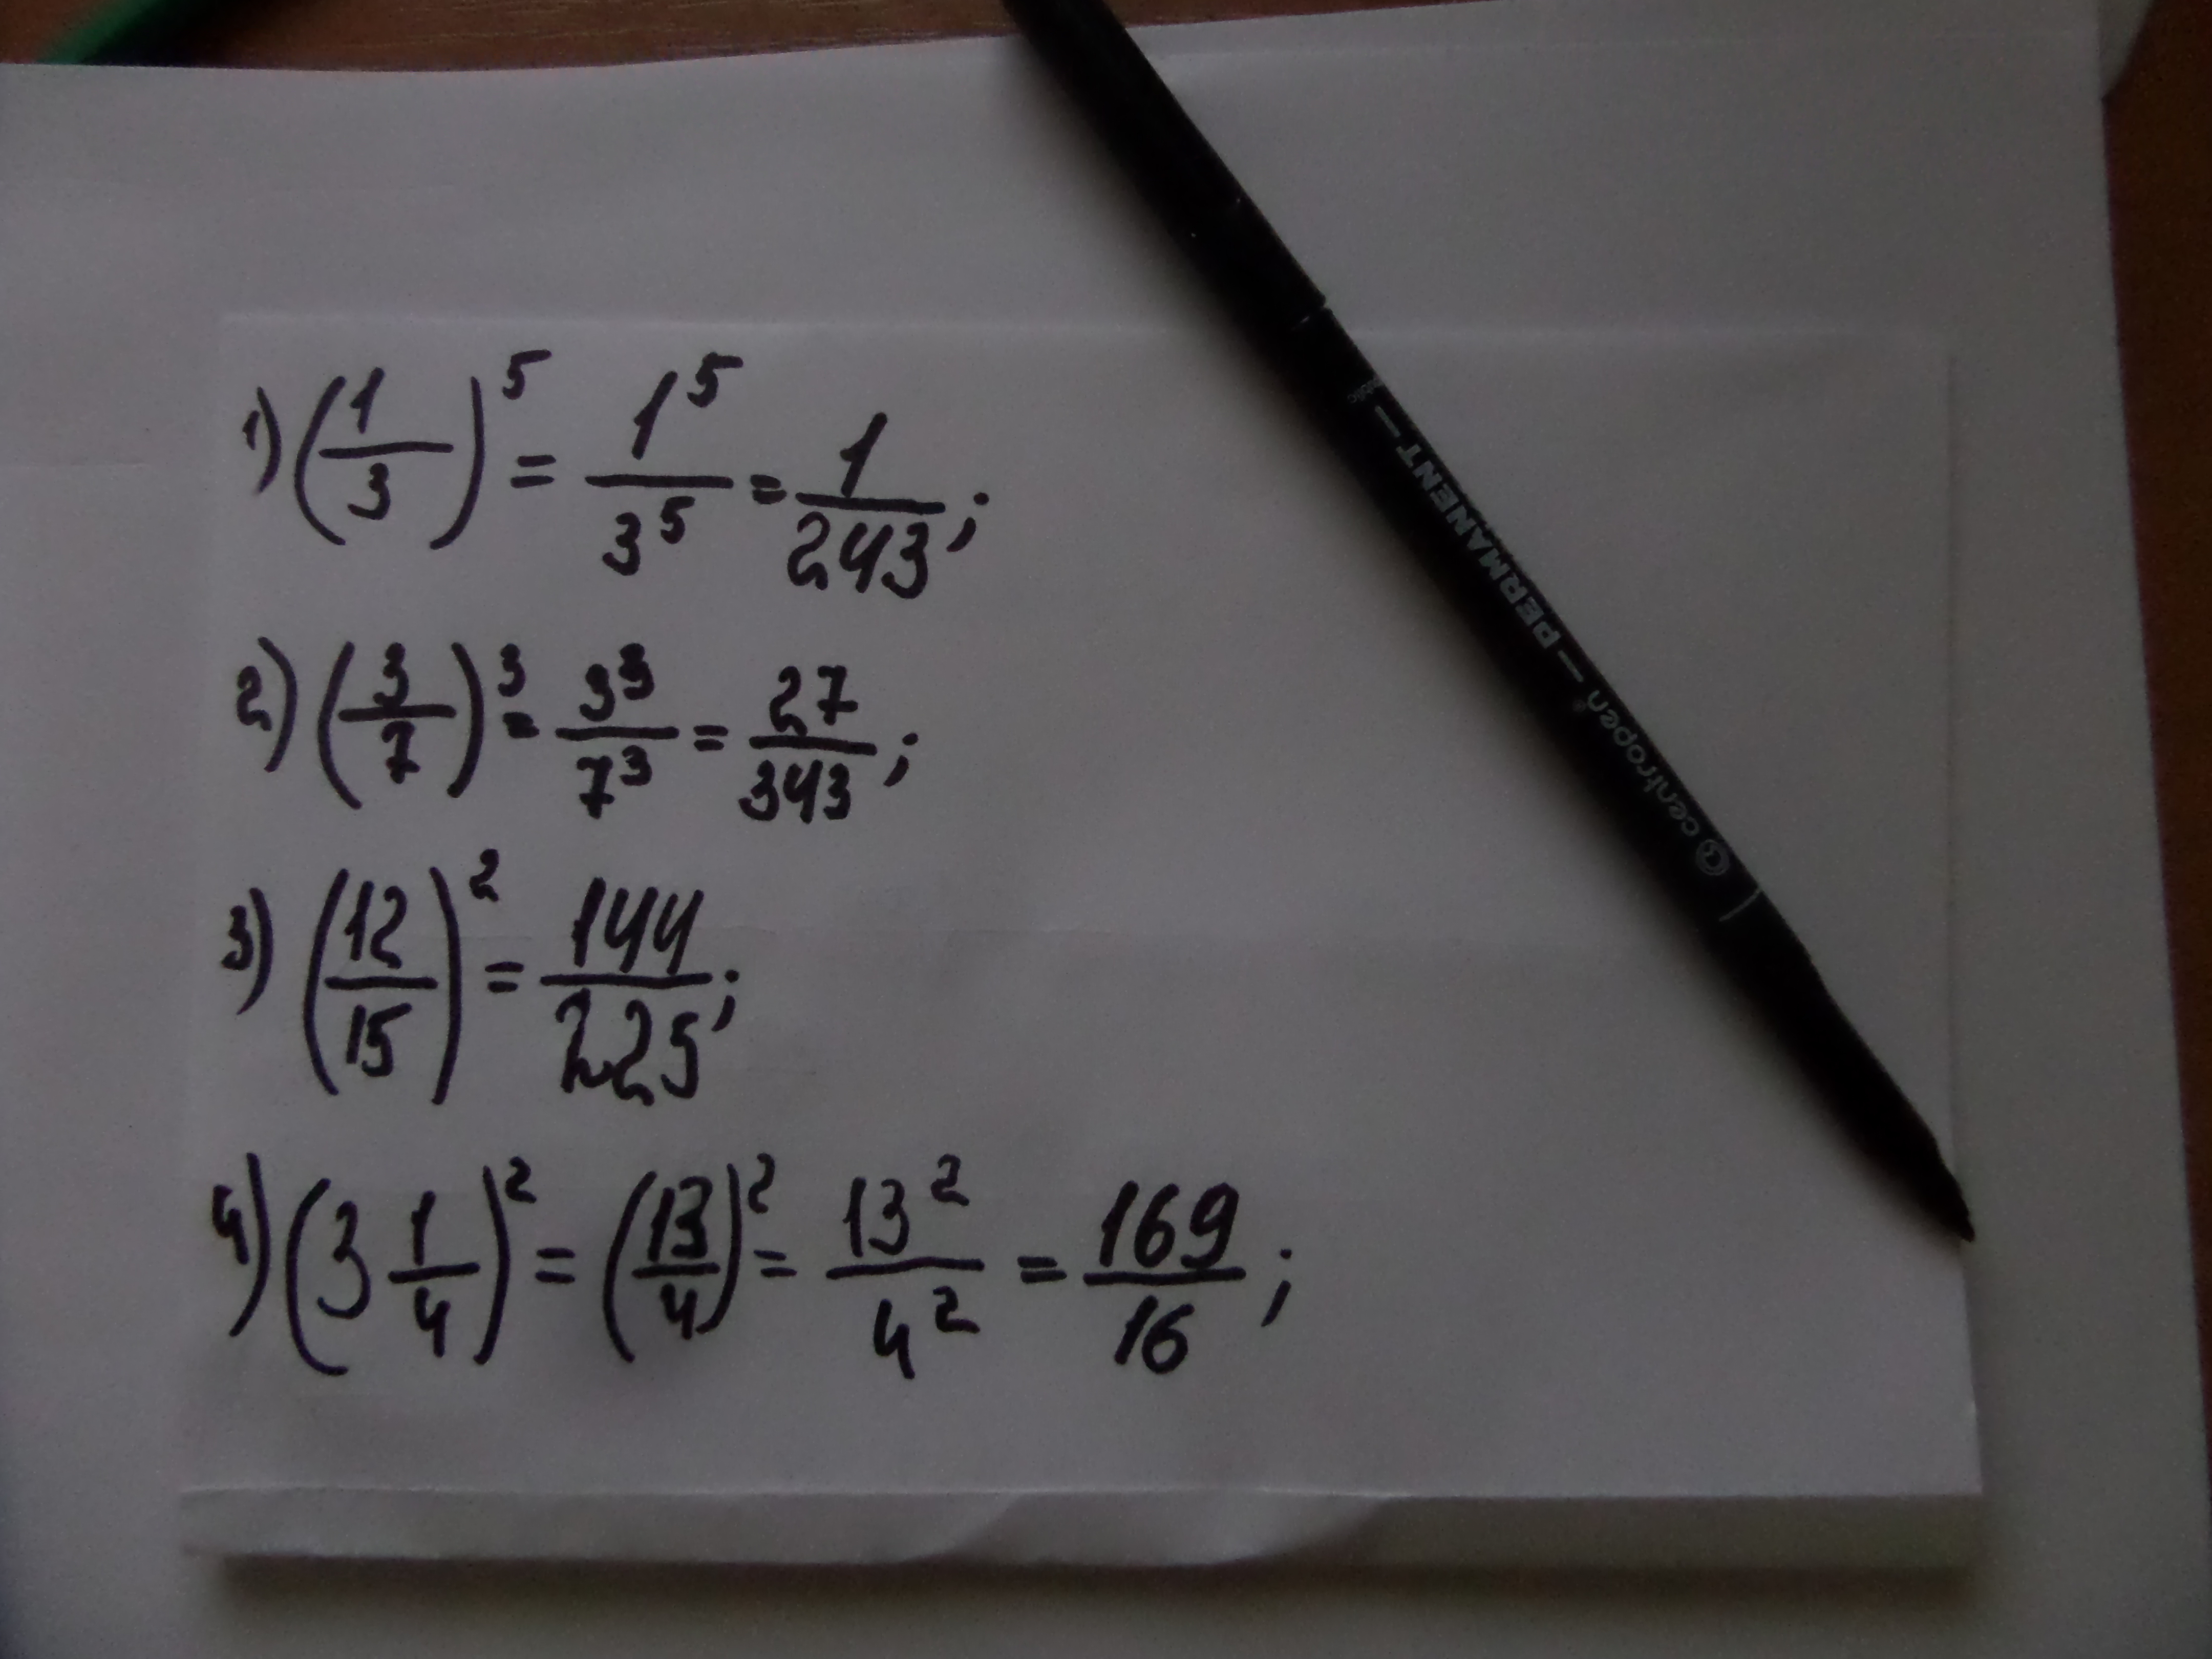 1) (1/3)^5 = 1^5/3^5 = 1/243;
2) (3/7)^3 = 3^3/7^3 = 27/343;
3) (12/15)^2 = 144/225;
4) (3 1/4)^2 = (13/4)^2 = 13^2/4^2 = 169/16;
centropen — PERMANENT —